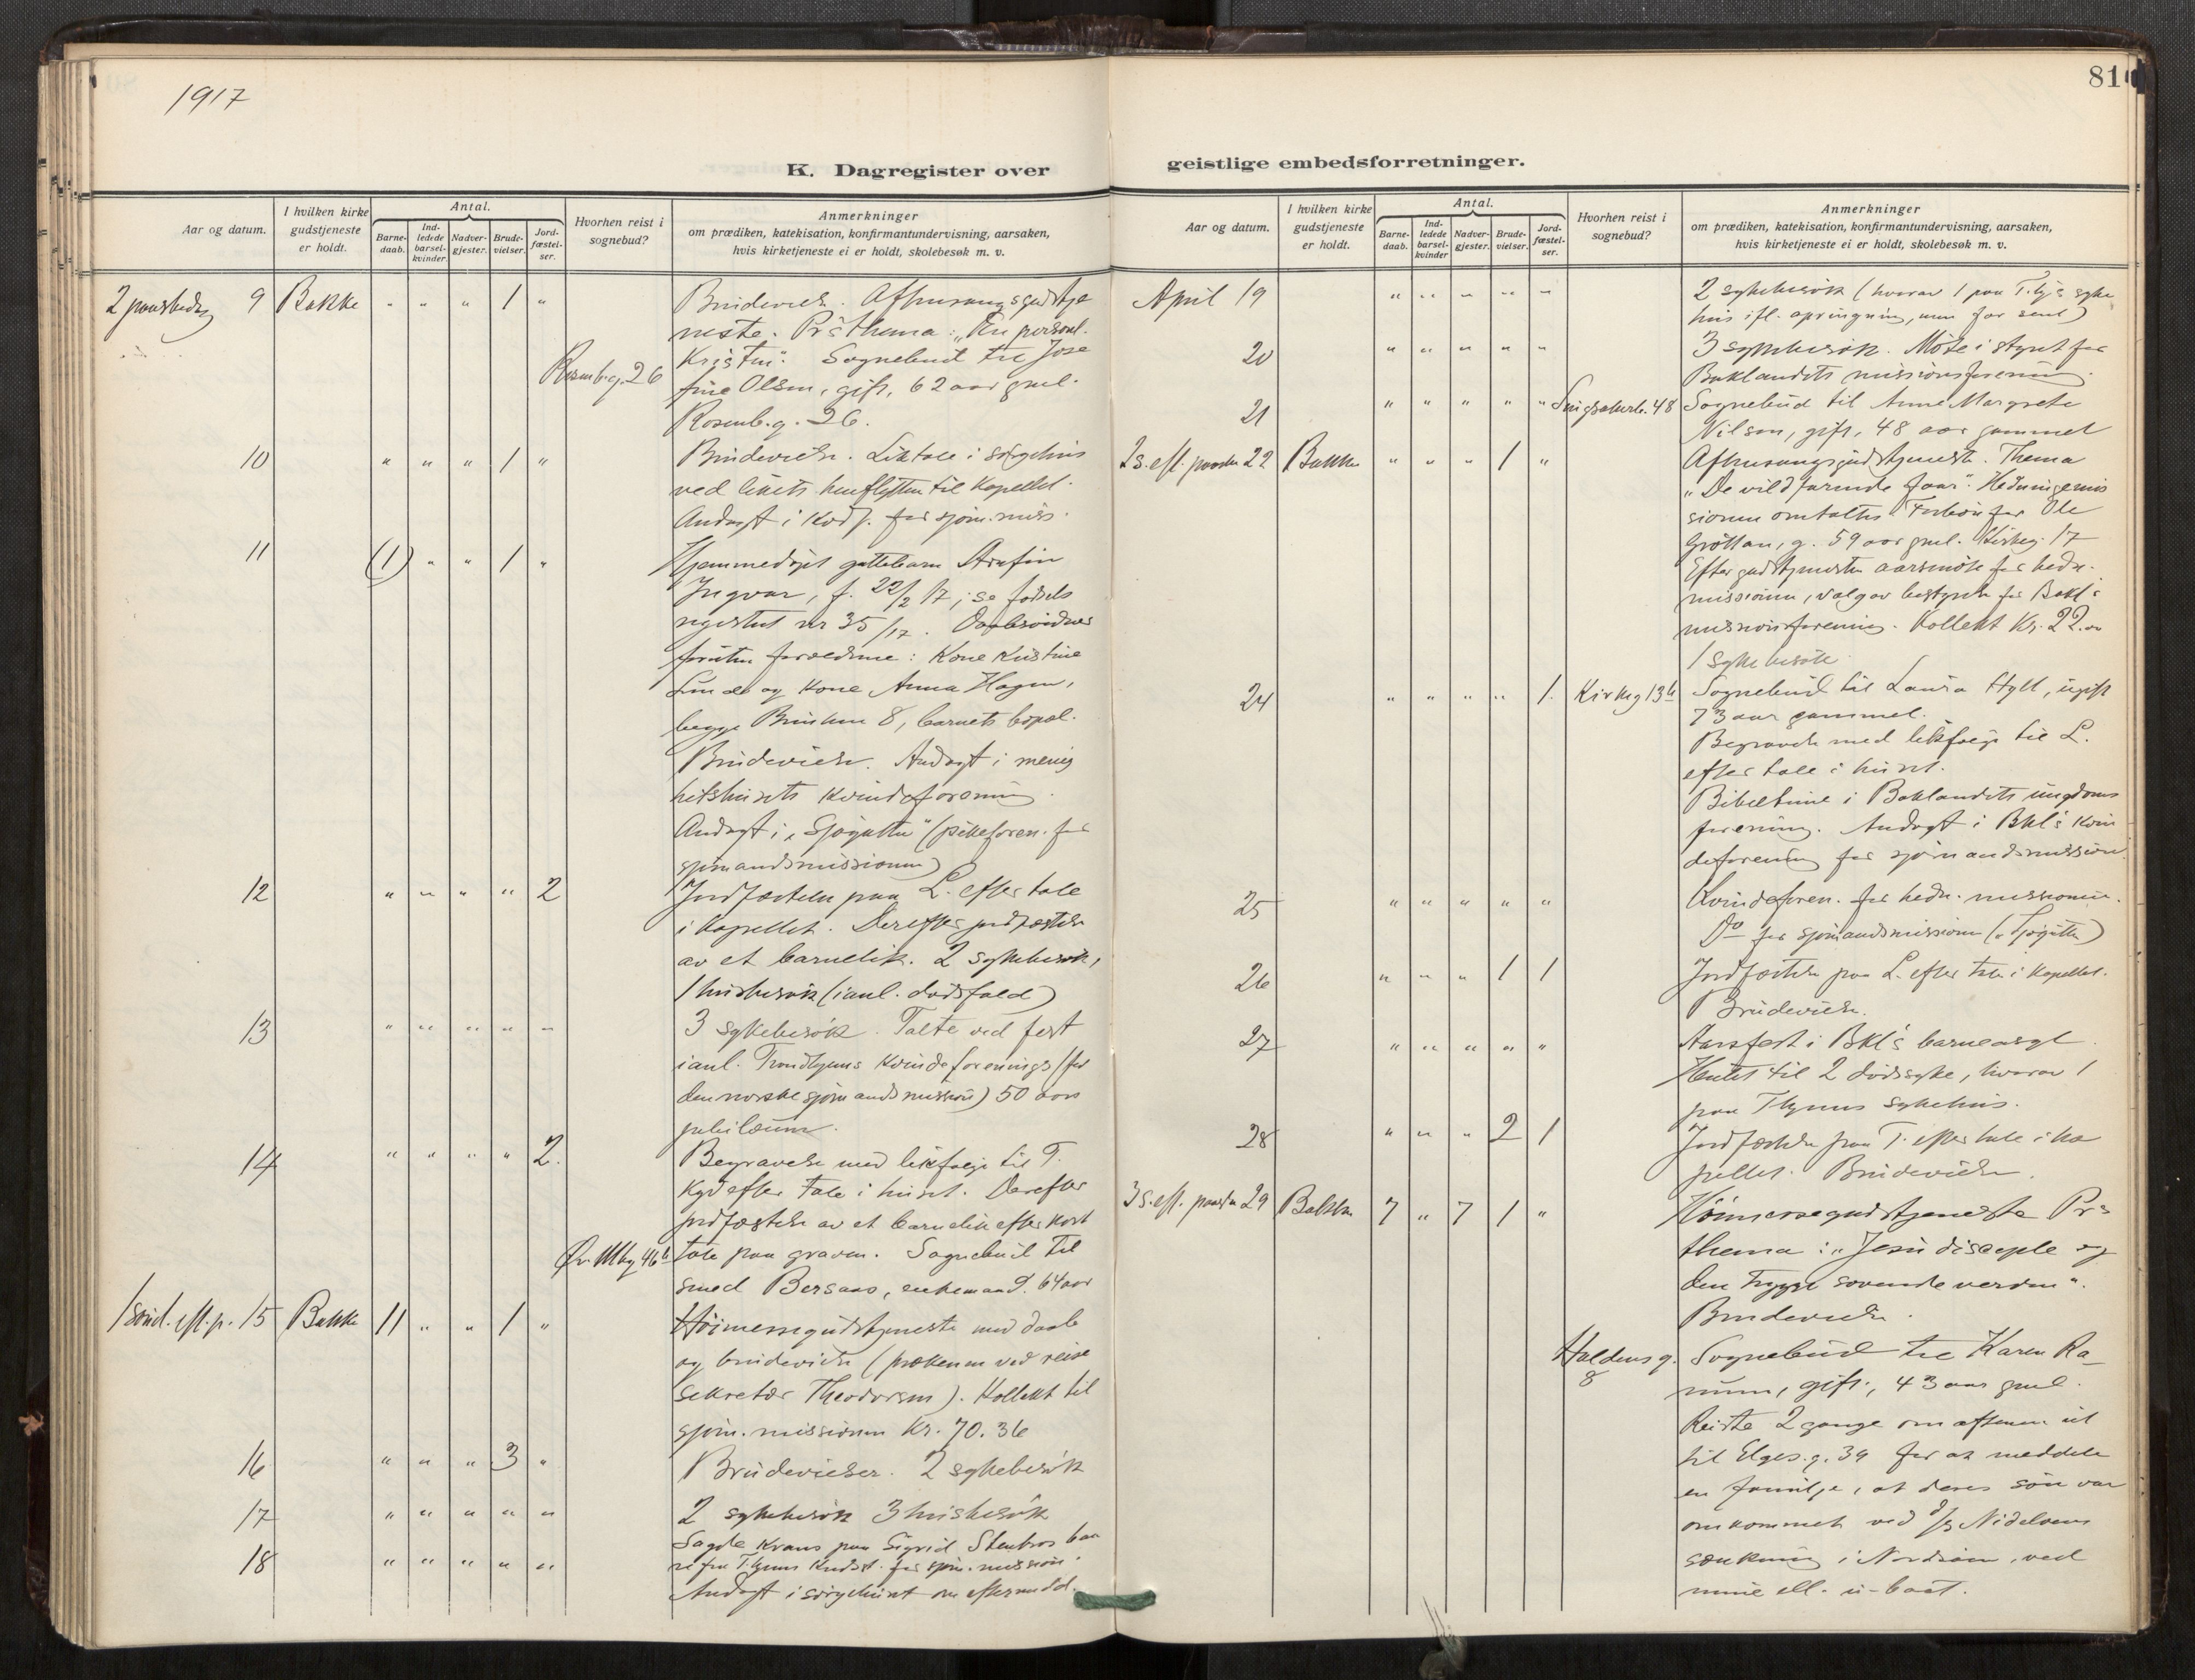 1917
K. Dagregister over
Aar og datum.
I hvilken kirke gudstjeneste er holdt.
Antal.
Barne-daab.
Ind-ledede barsel-kvinder.
Nadver-gjester.
Brude-vielser.
Jord-fæstel-ser.
Hvorhen reist i sognebud?
Anmerkninger
om prædiken, katekisation, konfirmantundervisning, aarsaken,
hvis kirketjeneste ei er holdt, skolebesøk m. v.
9 Bakke " " " 1 "
Brudevielse. Aftensangsgudstje
neste. Thema: "En personl.
Kristen". Sognebud til Jose
fine Olsen, gift, 62 aar gml.
Rosenb.g. 26
Rosenb.g. 26.
10 " " " 1 "
Brudevielse. Liktale i sørgehus
ved likets henflytten til Kapellet.
Andagt i Kvdf. for sjøm.miss.
11 (1) " " 1 "
Hjemmedøpt guttebarn Arnfin
Ingvar, f. 22/2 17, se fødsels
registret nr 35/17. Daabsvidner
foruten forældrene: Kone Kristine
Lunde og kone Anna Hagen,
begge 8, barnets bopæl.
Brudevielse. Andagt i menig
hetshusets kvindeforening.
Andagt i "Sjøgutten" (pikeforen. for
sjømandsmissionen)
12 " " " " 2
Jordfæstelse paa L. efter tale
i kapellet. Derefter jordfæstelse
av et barnelik. 2 sykebesøk,
1 husbesøk (i anl. dødsfald)
13 " " " " "
3 sykebesøk. Talte ved fest
i anl. Trondhjems kvindeforenings (for
den norske sjømandsmission) 50 aars
jubilæum.
14 " " " " 2.
Begravelse med likfølge til T.
kgd efter tale i huset. Derefter
jordfæstelse av et barnelik efter kort
tale paa graven. Sognebud til
Øv. Allég 46b
smed Bersaas, enkemand. 64 aar
1 sønd. eft. p. 15 Bakke 11 " " 1 "
Høimessegudstjeneste med daab
og brudevielse (prækenen ved reise
sekretær Theodorsen). Kollekt til
sjøm. missionen Kr. 70.36
16 " " " 3 "
Brudevielser. 2 sykebesøk
17 " " " " "
2 sykebesøk 3 husbesøk
18 " " " " "
Lagde krans paa Sigrid Stenbros baa
re fra T.hjems Kvdst. for sjøm. mission.
Andagt i sørgehuset om eftermidd.
81
geistlige embedsforretninger.
Aar og datum.
I hvilken kirke gudstjeneste er holdt.
Antal.
Barne-daab.
Ind-ledede barsel-kvinder
Nadver-gjester.
Brude-vielser.
Jord-fæstel-ser.
Hvorhen reist i sognebud?
Anmerkninger
om prædiken, katekisation, konfirmantundervisning, aarsaken,
hvis kirketjeneste ei er holdt, skolebesøk m. v.
April 19 " " " " "
2 sykebesøk (hvorav 1 paa T.hjs syke
hus ifl. opringning, men for sent)
20 " " " " "
3 sykebesøk. Møte i styret for
Baklandets missionsforening.
21 " " " " "
Singsakerb. 48
Sognebud til Anne Margrete
Nilsen, gift, 48 aar gammel
2 s. eft. paaske 22 Bakke " " " 1 "
Aftensangsgudstjeneste. Thema
"De vildfarende faar". Hedningemis
sionen omtaltes. Forbøn for Ole
Grøttan, g. 59 aar gml. Kirkeg. 17
Efter gudstjenesten aarsmøte for hedn.
missionen, valg av bestyrelse for Bakl's
missionsforening. Kollekt Kr. 22.00
1 sykebesøk
24 " " " " 1.
Kirkeg 13b
Sognebud til Laura Hyll, ugift
73 aar gammel.
Begravelse med likfølge til L.
efter tale i huset.
Bibeltime i Baklandets ungdoms
forening. Andagt i Bkl's kvin
deforening for sjømandsmission.
25 " " " " "
Kvindeforen. for hedn. missionen.
Do for sjømandsmissionen ("Sjøgutten")
26 " " " 1 1
Jordfæstelse paa L. efter tale i kapellet.
Brudevielse.
27 " " " " "
Aarsfest i Bkl's barneasyl.
Hentet til 2 dødssyke, hvorav 1
paa T.hjems sykehus.
28 " " " 2 1
Jordfæstelse paa T. efter tale i ka
pellet. Brudevielse.
3 s. eft. paaske 29 Bakke 7 " 7 1 "
Høimessegudstjeneste
thema: "Jesu disciple og
den trygge sovende verden".
Brudevielse.
Haldens g.
8
Sognebud til Karen Ra-
num, gift, 43 aar gml.
Reiste 2 gange om aftenen ut
til Elges.g. 39 for at meddele
en familje, at deres søn var
omkommet ved d/s Nidelvens
sænkning i Nordsjøen, ved
mine ell. u-baat.